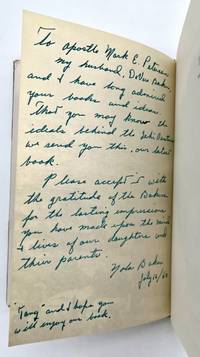 To Apostle Mark E. Petersen
my husband, DeVere Baker,
and I have long admired
your books and ideas.
That you may know the
ideals behind the Lehi
we send you this, our latest
book.
Please accept it with
the gratitude of the Bakers
for the lasting impression
you have made upon the minds
& lives of our daughters and
their parents.
Nola Baker
July 12/60
"Tang" and I hope you
will enjoy our book.